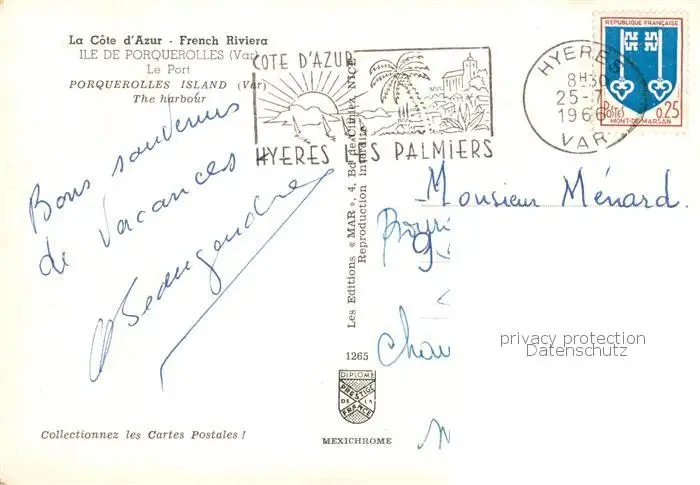 La Côte d'Azur - French Riviera
ILE DE PORQUEROLLES (Var)
Le Port
PORQUEROLLES ISLAND (Var)
The harbour
COTE D'AZUR
HYERES LES PALMIERS
HYERES
8H30
25-7
1966
VAR
REPUBLIQUE FRANÇAISE
POSTES
0,25
MONT-DE-MARSAN
Bons souvenirs
de vacances
Beaugendre
Monsieur Ménard.
Les Editions « MAR », 4, Bd de Cimiez, NICE
Reproduction interdite
privacy protection
Datenschutz
1265
DIPLOME
PRESTIGE
DE LA
FRANCE
Collectionnez les Cartes Postales !
MEXICHROME